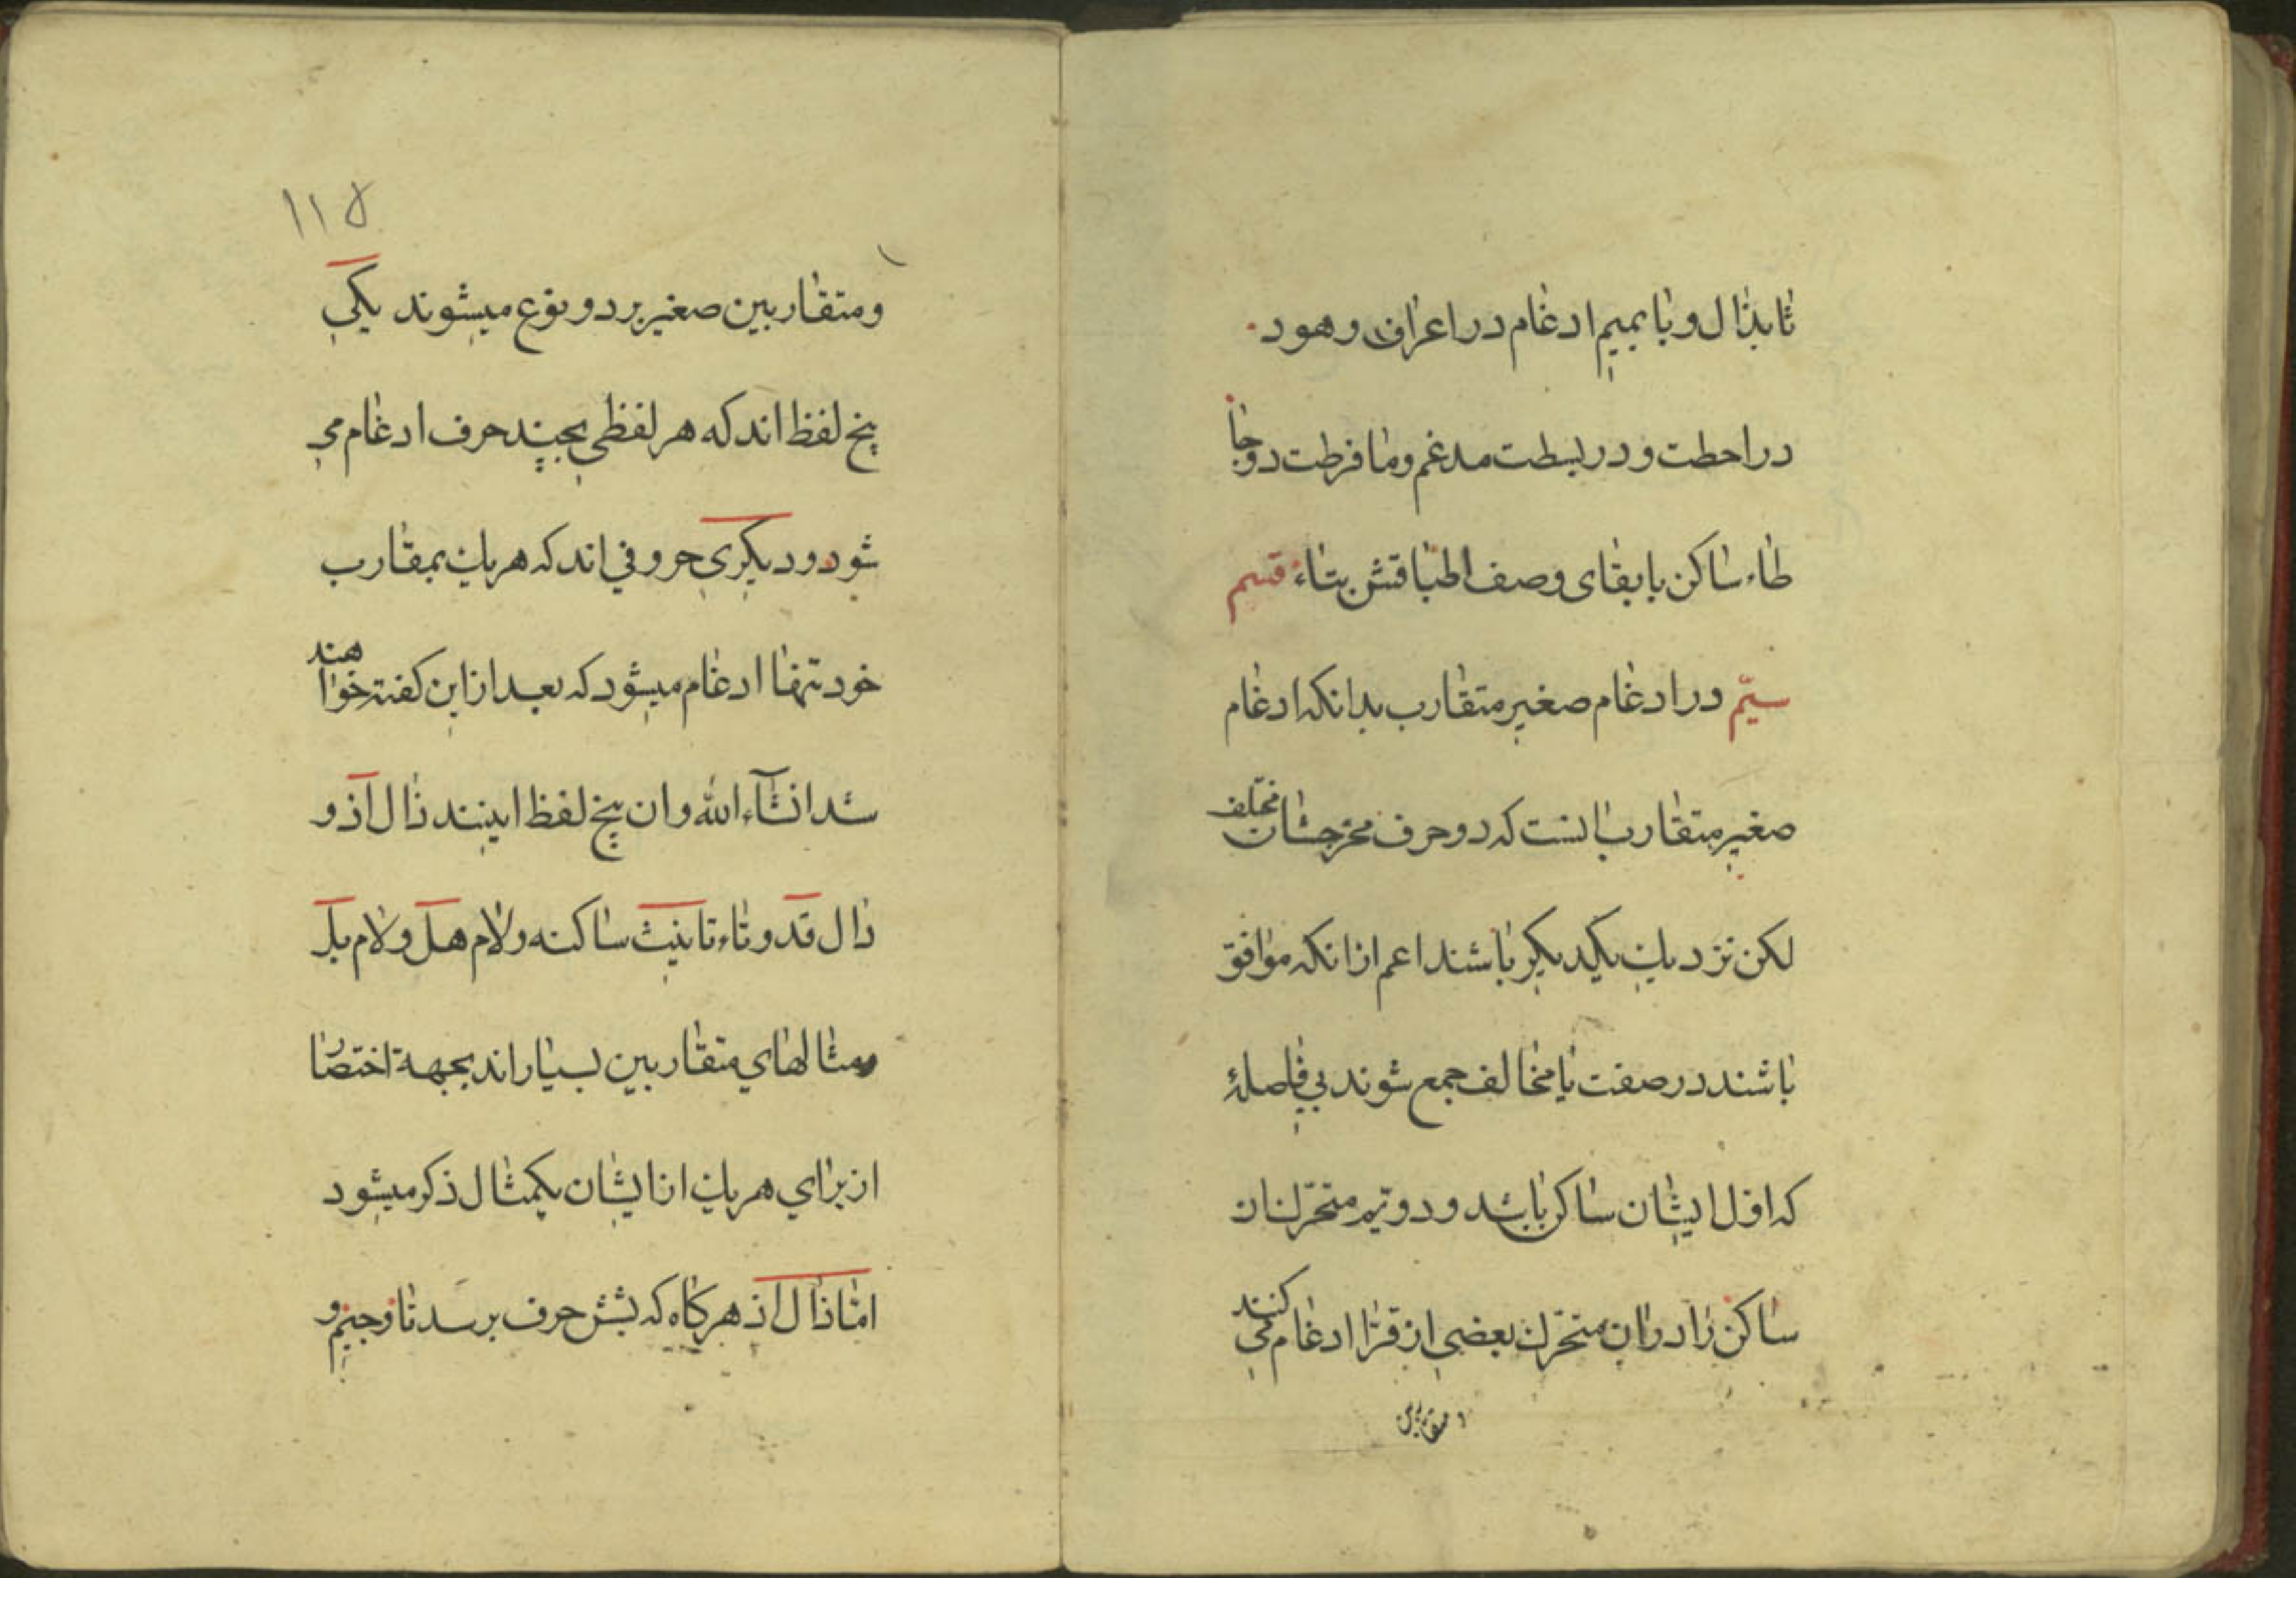 ثا بذال و با بمیم ادغام در اعراف و هود
در احطت و در بسطت مدغم و ما فرطت دو جا
طاء ساکن با بقای وصف اطباقش بتاء قسم
سیّم در ادغام صغیر متقارب بدانکه ادغام
صغیر متقارب انست که دو حرف مخرجشان مختلف
لکن نزدیک یکدیکر باشند اعم ازانکه موافق
باشند در صفت یا مخالف جمع شوند بی فاصلهٔ
که اول ایشان ساکن باشد و دویّم متحرّک ان
ساکن را در ان متحرّک بعضی از قرّا ادغام می کنند
و متقاربین صغیر بر دو نوع میشوند یکی
پنج لفظ اند که هر لفظی بچند حرف ادغام می
شود و دیکری حروفی اند که هر یک بمقارب
خود تنها ادغام میشود که بعد ازاین کفته خواهند
شد انشآء الله و ان پنج لفظ اینند ذال اذ و
دال قد و تاء تانیث ساکنه و لام هل و لام بل
و مثالهای متقاربین بسیار اند بجهة اختصار
از برای هر یک از ایشان یکمثال ذکر میشود
امّا ذال اذ هرکاه که بشش حرف برسد تا و جیم و
۱۱۵